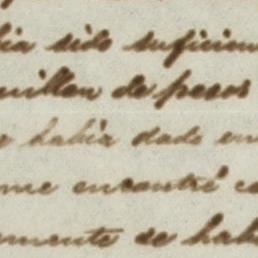 bia sido suficien
millon de pesos
e habia dado en
me encontré co
amente se habi